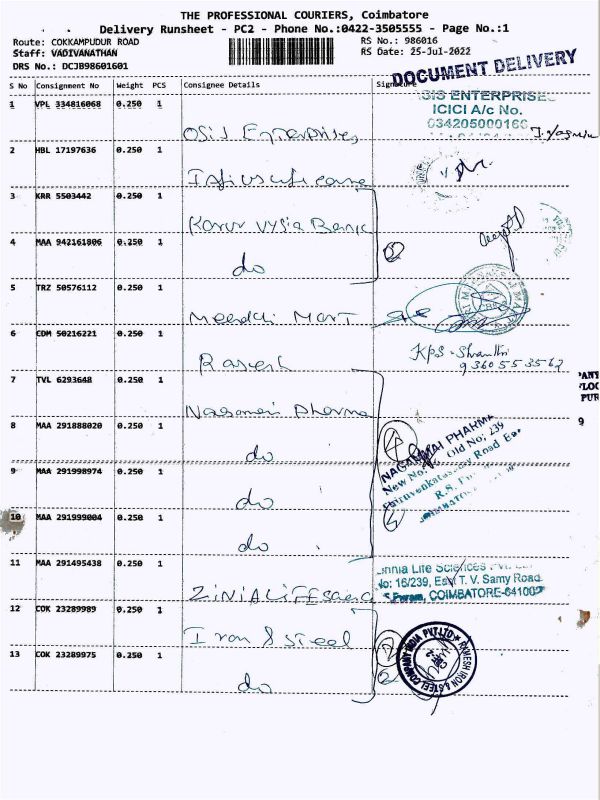 THE PROFESSIONAL COURIERS, Coimbatore
Delivery Runsheet - PC2 - Phone No.:0422-3505555 - Page No.:1
Route: COKKAMPUDUR ROAD RS No.: 986016
Staff: VADIVANATHAN RS Date: 25-Jul-2022
DRS No.: DCJB98601601
DOCUMENT DELIVERY
S No Consignment No Weight PCS Consignee Details Signature
1 VPL 334816068 0.250 1 Osis Enterprises
ENTERPRISES
ICICI A/c No.
034205000166
2 HBL 17197636 0.250 1
3 KRR 5503442 0.250 1 Karur Vysia Bank
4 MAA 942161806 0.250 1 do
5 TRZ 50576112 0.250 1 Meenakshi Mart
6 CDM 50216221 0.250 1 Rakesh
KPS - Shranthi
9360553562
7 TVL 6293648 0.250 1 Nagamani Pharma
8 MAA 291888020 0.250 1 do
4
PHARMA
New No: Old No: 239
Road
9 MAA 291998974 0.250 1 do
10 MAA 291999004 0.250 1 do
11 MAA 291495438 0.250 1 ZiNiA LiFE
Linnia Life Sciences
No: 16/239, East T. V. Samy Road
COIMBATORE-641002
12 COK 23289989 0.250 1 Iron & steel
2
RAKESH IRON & STEEL COMPANY INDIA PVT LTD
13 COK 23289975 0.250 1 do
PUR
9